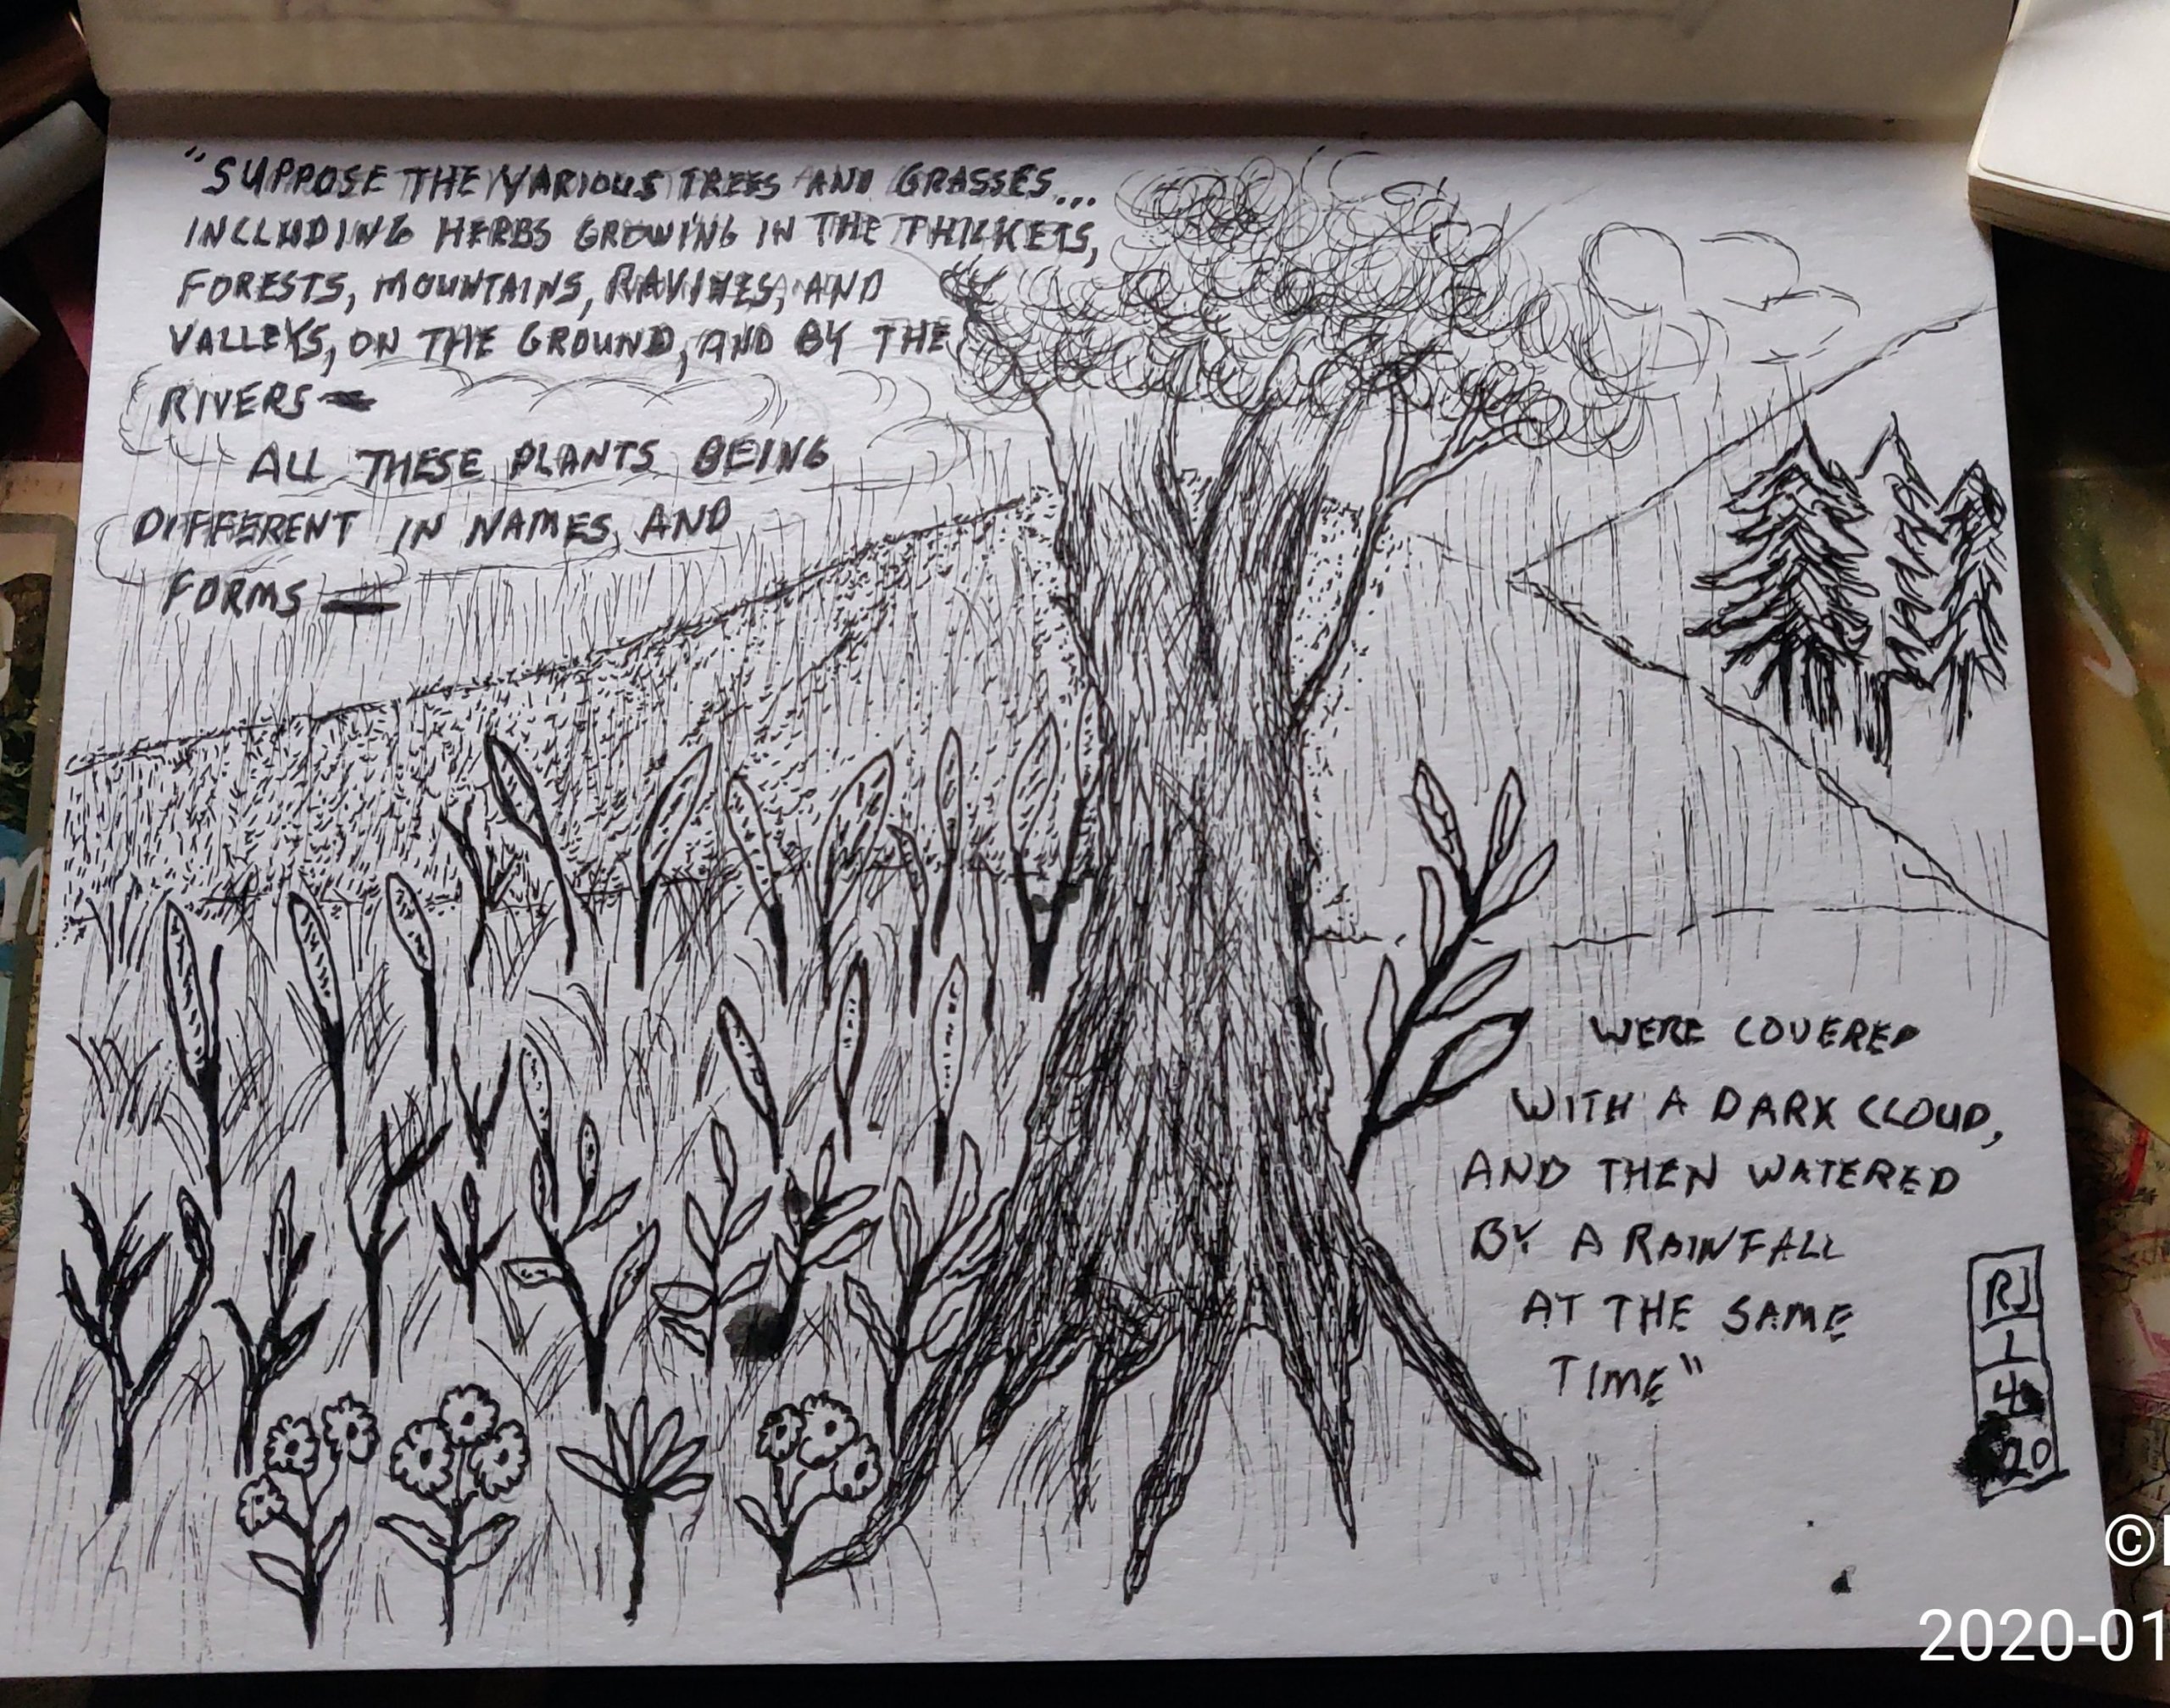 "SUPPOSE THE VARIOUS TREES AND GRASSES...
INCLUDING HERBS GROWING IN THE THICKETS,
FORESTS, MOUNTAINS, RAVINES, AND
VALLEYS, ON THE GROUND, AND BY THE
RIVERS—
ALL THESE PLANTS BEING
DIFFERENT IN NAMES, AND
FORMS —
WERE COVERED
WITH A DARK CLOUD,
AND THEN WATERED
BY A RAINFALL
AT THE SAME
TIME"
RJ
1
4
20
©
2020-01